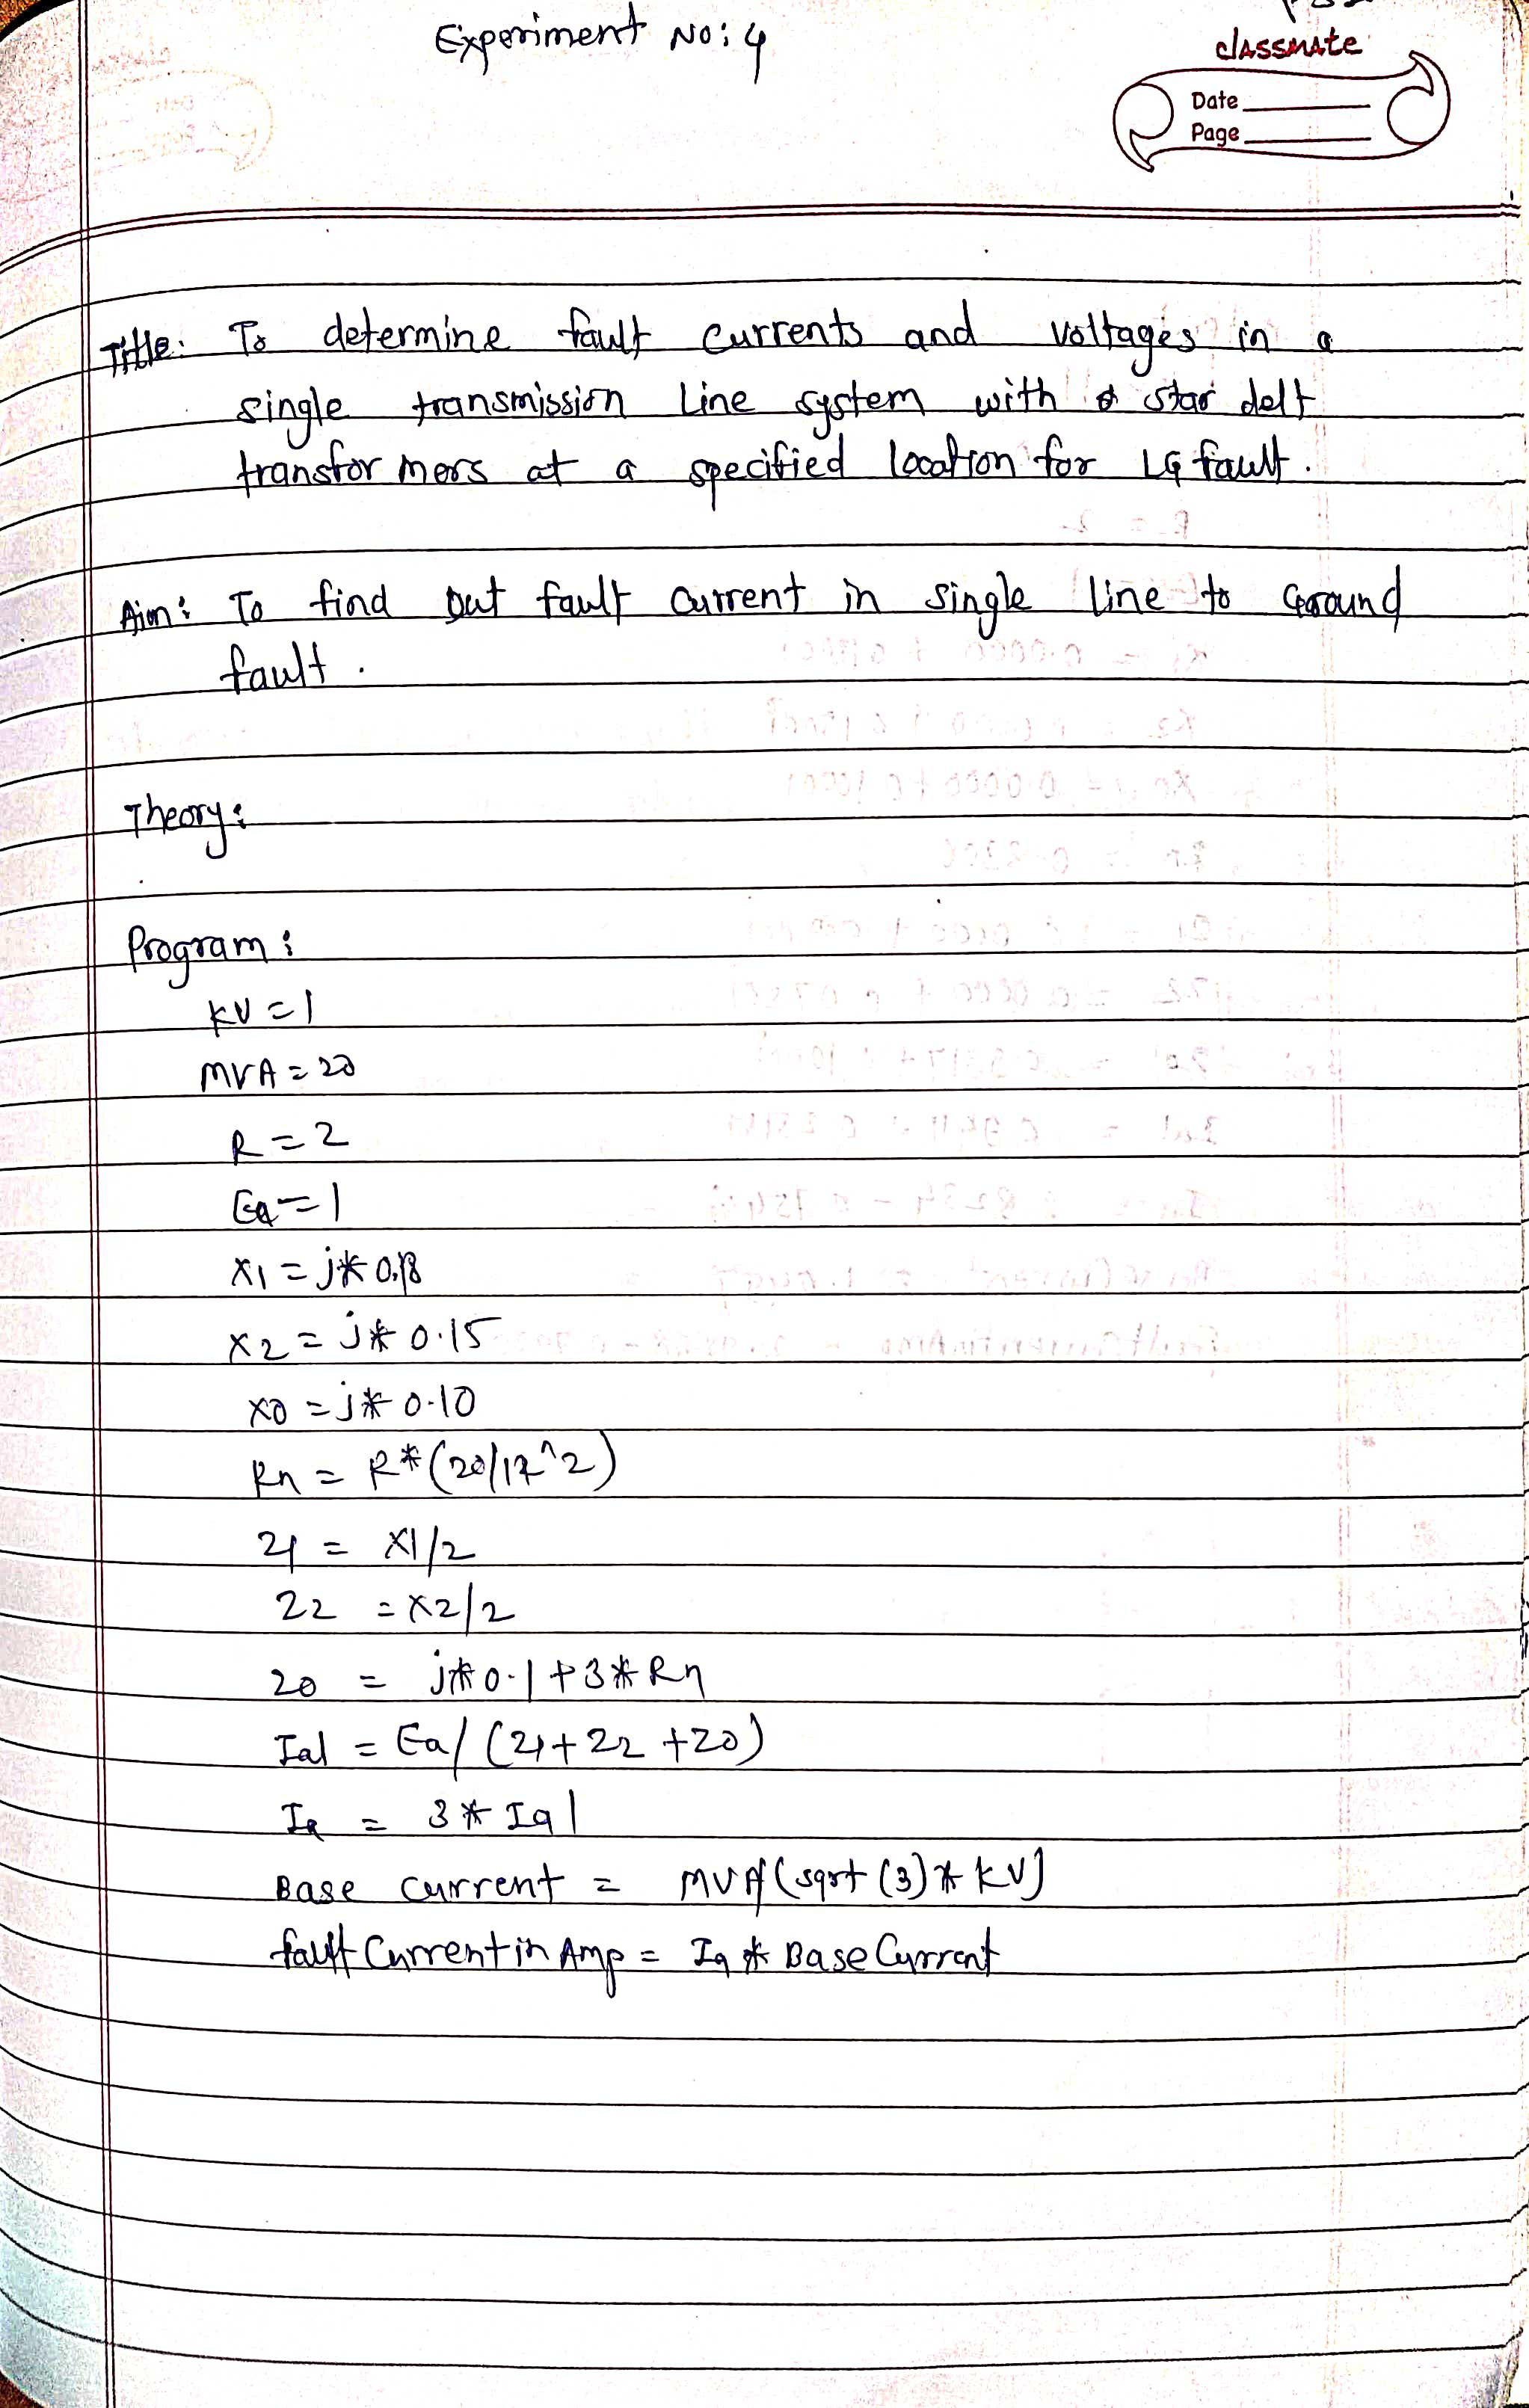 Experiment No: 4
classmate
Date
Page
Title: To determine fault currents and voltages in a
single transmission Line system with star delt
transformers at a specified location for LG fault.
Aim: To find out fault current in single line to Ground
fault.
Theory:
Program:
KV = 1
MVA = 20
R = 2
Ea = 1
X1 = j* 0.18
X2 = j* 0.15
X0 = j* 0.10
Rn = R*(20/ ^2)
Z1 = X1/2
Z2 = X2/2
Z0 = j*0.1+3*Rn
Ia1 = Ea/(Z1+Z2+Z0)
Ia = 3*Ia1
Base current = MVA/(sqrt(3)*KV)
fault Current in Amp = Ia * Base Current